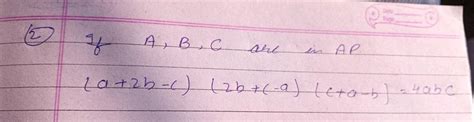 (2) If A, B, C are in AP
(a+2b-c) (2b+c-a) (c+a-b) = 4abc